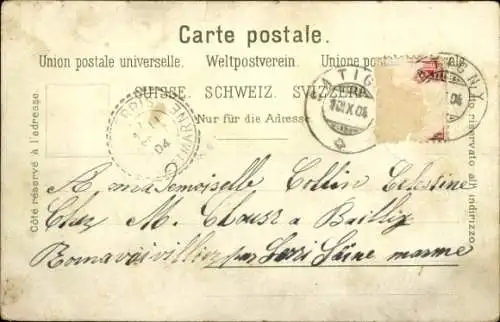 Carte postale.
Union postale universelle. Weltpostverein. Unione postale universale
SUISSE. SCHWEIZ. SVIZZERA.
Nur für die Adresse.
Côté réservé à l'adresse.
Lato riservato all' indirizzo.
SATIGNY
10.IX.04
BRIS MARNE
04
A Mademoiselle Collin Celestine
Chez M. Clousz a Bailly
Romainvillier par Seine marne